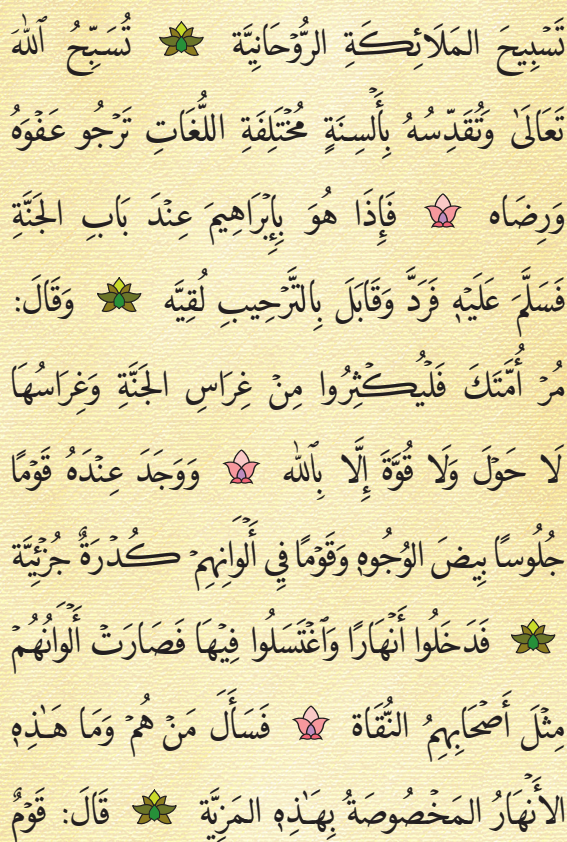 تَسْبِيحَ المَلَائِكَةِ الرُّوْحَانِيَّة تُسَبِّحُ ٱللهَ
تَعَالَىٰ وَتُقَدِّسُهُ بِأَلْسِنَةٍ مُخْتَلِفَةِ اللُّغَاتِ تَرْجُو عَفْوَهُ
وَرِضَاه فَإِذَا هُوَ بِإِبْرَاهِيمَ عِنْدَ بَابِ الجَنَّةِ
فَسَلَّمَ عَلَيْهِ فَرَدَّ وَقَابَلَ بِالتَّرْحِيبِ لُقِيَّه وَقَالَ:
مُرْ أُمَّتَكَ فَلْيُكْثِرُوا مِنْ غِرَاسِ الجَنَّةِ وَغِرَاسُهَا
لَا حَوْلَ وَلَا قُوَّةَ إِلَّا بِٱلله وَوَجَدَ عِنْدَهُ قَوْمًا
جُلُوسًا بِيضَ الوُجُوهِ وَقَوْمًا فِي أَلْوَانِهِمْ كُدْرَةٌ جُزْئِيَّة
فَدَخَلُوا أَنْهَارًا وَٱغْتَسَلُوا فِيْهَا فَصَارَتْ أَلْوَانُهُمْ
مِثْلَ أَصْحَابِهِمُ النُّقَاة فَسَأَلَ مَنْ هُمْ وَمَا هَـٰذِهِ
الأَنْهَارُ المَخْصُوصَةُ بِهَـٰذِهِ المَزِيَّة قَالَ: قَوْمٌ